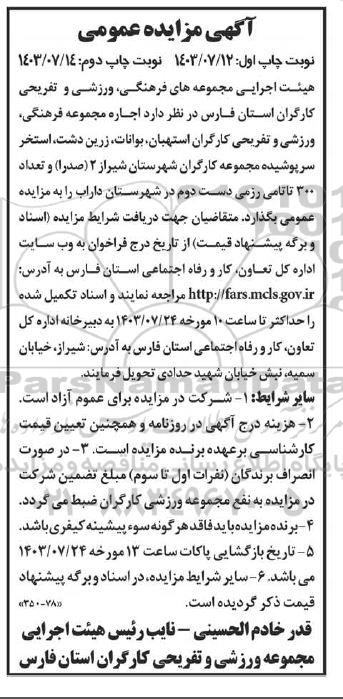 آگهی مزایده عمومی
نوبت چاپ اول: ۱۴۰۳/۰۷/۱۲ نوبت چاپ دوم: ۱۴۰۳/۰۷/۱۴
هیئت اجرایی مجموعه های فرهنگی، ورزشی و تفریحی
کارگران استان فارس در نظر دارد اجاره مجموعه فرهنگی،
ورزشی و تفریحی کارگران استهبان، بوانات، زرین دشت، استخر
سرپوشیده مجموعه کارگران شهرستان شیراز ۲ (صدرا) و تعداد
۳۰۰ تاتامی رزمی دست دوم در شهرستان داراب را به مزایده
عمومی بگذارد. متقاضیان جهت دریافت شرایط مزایده (اسناد
و برگه پیشنهاد قیمت) از تاریخ درج فراخوان به وب سایت
اداره کل تعاون، کار و رفاه اجتماعی استان فارس به آدرس:
http://fars.mcls.gov.ir مراجعه نمایند و اسناد تکمیل شده
را حداکثر تا ساعت ۱۰ مورخه ۱۴۰۳/۰۷/۲۴ به دبیرخانه اداره کل
تعاون، کار و رفاه اجتماعی استان فارس به آدرس: شیراز، خیابان
سمیه، نبش خیابان شهید حدادی تحویل فرمایند.
سایر شرایط: ۱- شرکت در مزایده برای عموم آزاد است.
۲- هزینه درج آگهی در روزنامه و همچنین تعیین قیمت
کارشناسی برعهده برنده مزایده است. ۳- در صورت
انصراف برندگان (نفرات اول تا سوم) مبلغ تضمین شرکت
در مزایده به نفع مجموعه ورزشی کارگران ضبط می گردد.
۴- برنده مزایده باید فاقد هرگونه سوء پیشینه کیفری باشد.
۵- تاریخ بازگشایی پاکات ساعت ۱۳ مورخه ۱۴۰۳/۰۷/۲۴
می باشد. ۶- سایر شرایط مزایده، در اسناد و برگه پیشنهاد
قیمت ذکر گردیده است. «۳۵۰-۷۸»
قدر خادم الحسینی - نایب رئیس هیئت اجرایی
مجموعه ورزشی و تفریحی کارگران استان فارس